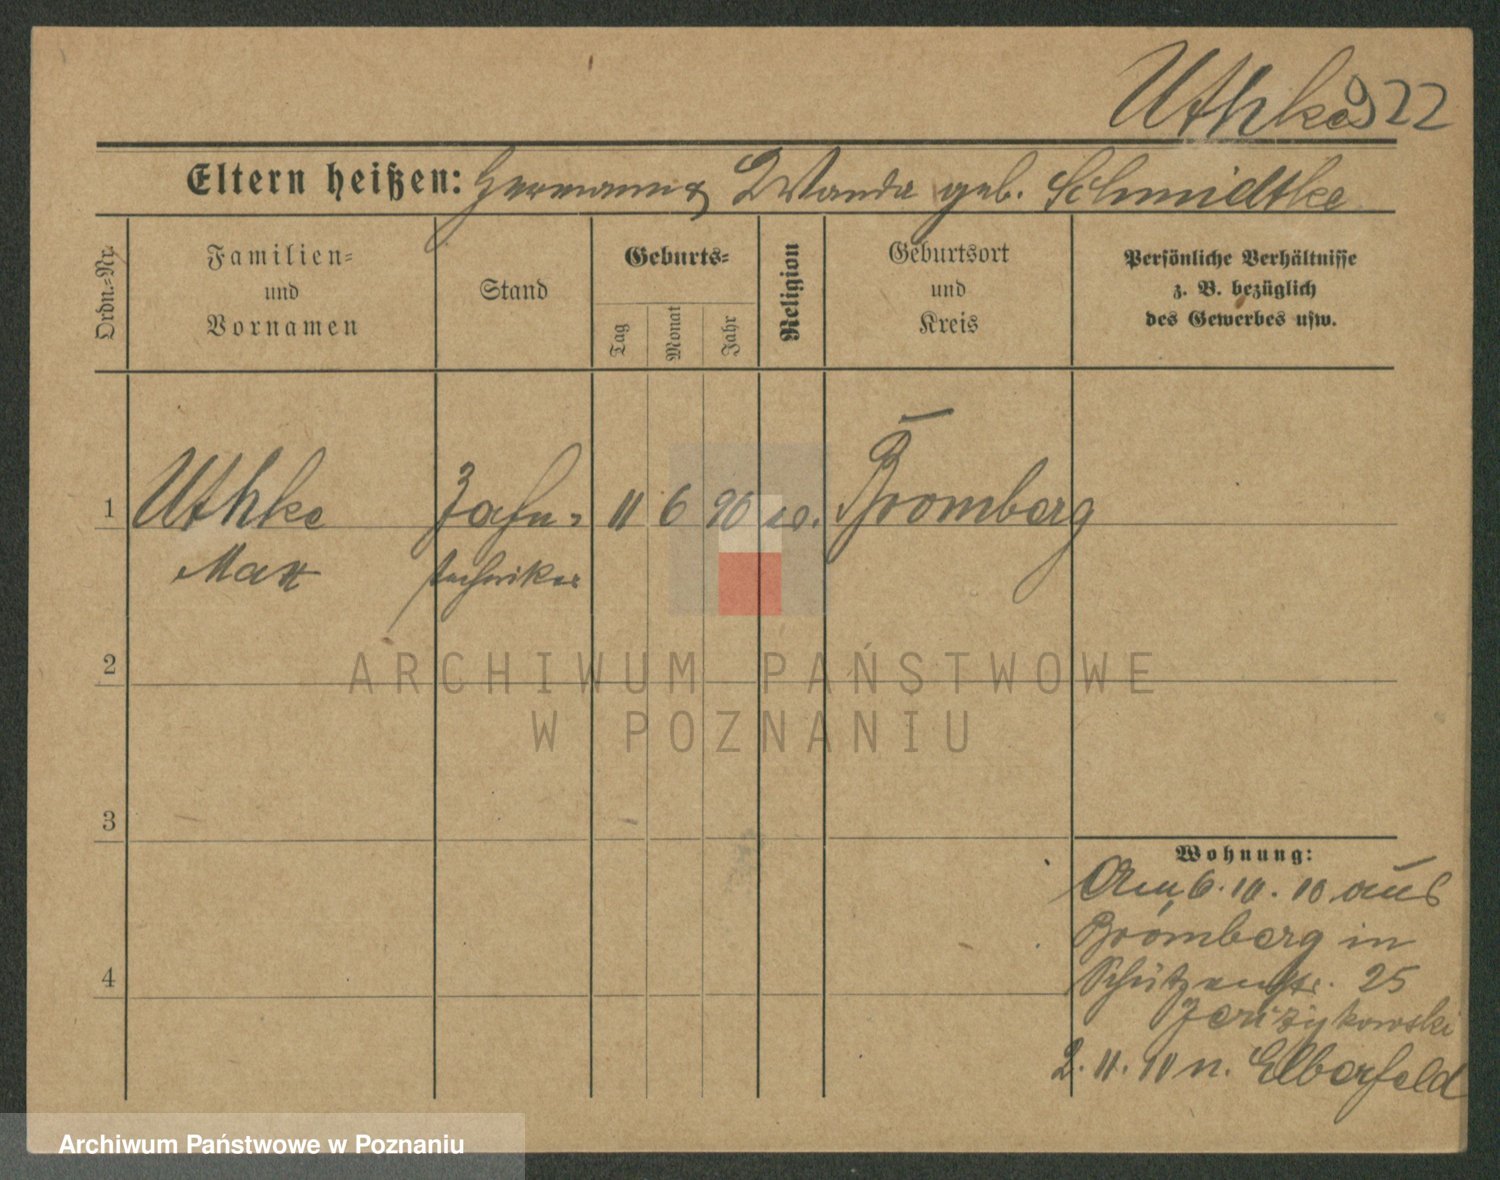 Uthke 922
Eltern heißen: Hermann & Wanda geb. Schmidtke
Ordn.-Nr.
Familien-
und
Vornamen
Stand
Geburts-
Tag
Monat
Jahr
Religion
Geburtsort
und
Kreis
Persönliche Verhältnisse
z. B. bezüglich
des Gewerbes usw.
1 Uthke Zahn- 11 6 90 ev. Bromberg
Max techniker
2
ARCHIWUM PAŃSTWOWE
W POZNANIU
3
Wohnung:
Am 6. 10. 10 aus
Bromberg in
4 Schützenstr. 25
2. 11. 10 n. Elberfeld
Archiwum Państwowe w Poznaniu